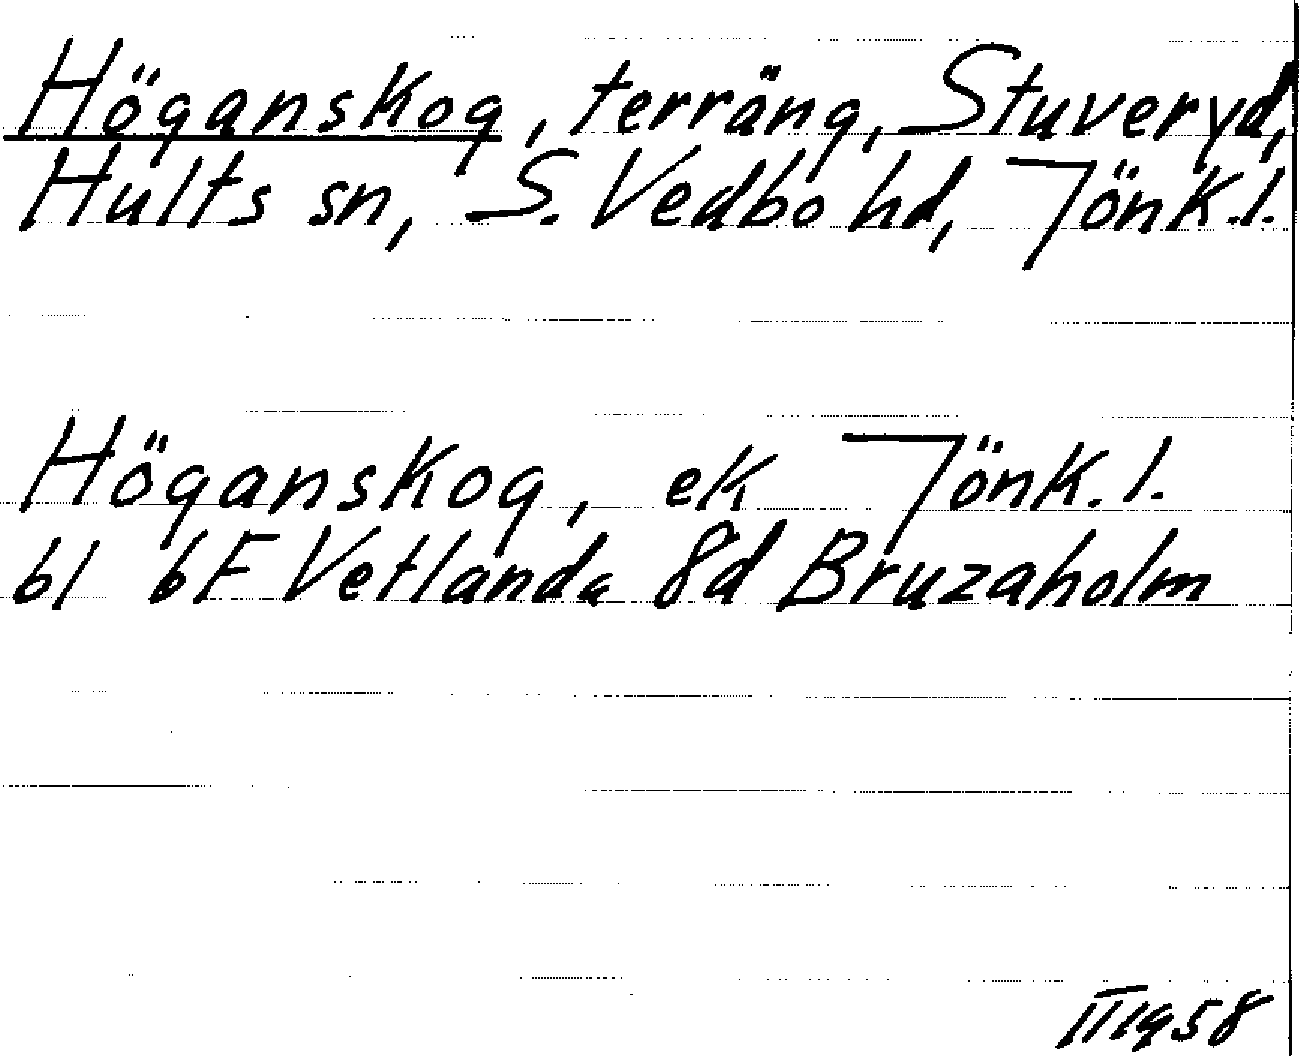 Höganskog, terräng, Stuveryd,
Hults sn, S. Vedbo hd, Jönk.l.
Höganskog, ek Jönk.l.
bl 6F Vetlanda 8d Bruzaholm
II 1958